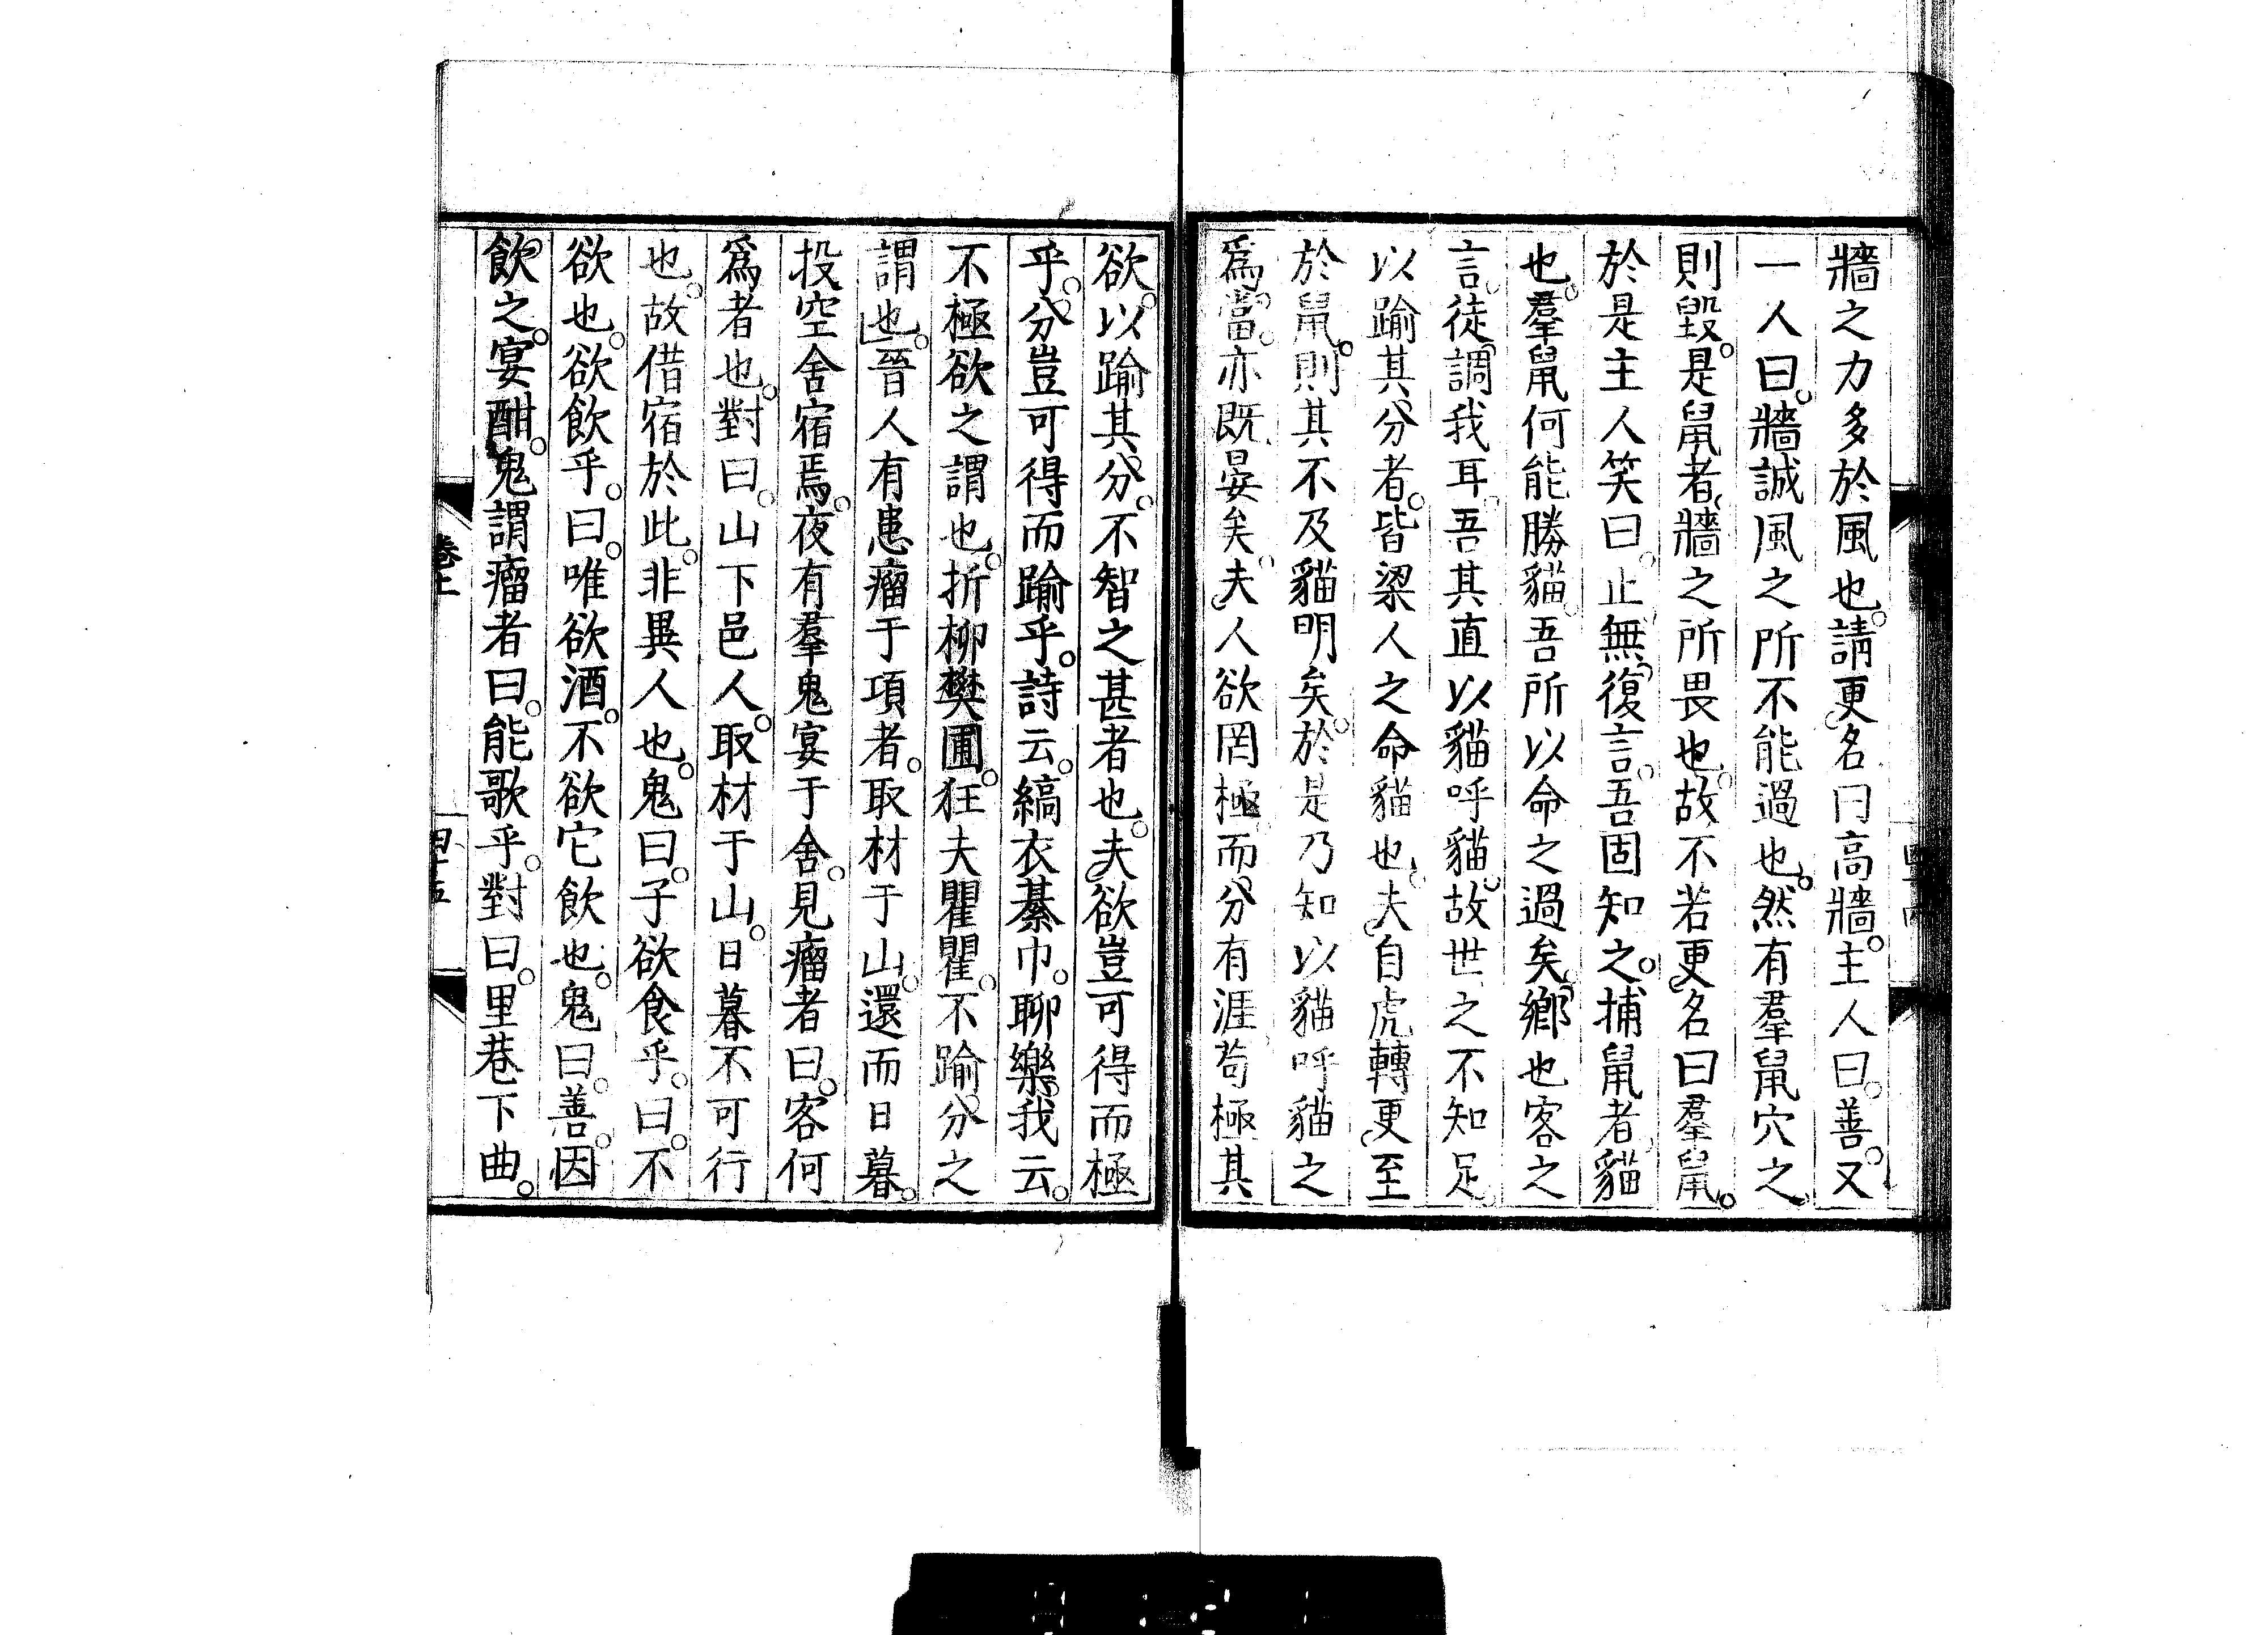 牆之力多於風也。請更名曰高牆。主人曰。善。又
一人曰。牆誠風之所不能過也。然有羣鼠穴之
則毀。是鼠者牆之所畏也。故不若更名曰羣鼠。
於是主人笑曰。止無復言。吾固知之。捕鼠者貓
也。羣鼠何能勝貓。吾所以命之過矣。鄉也客之
言。徒調我耳。吾其直以貓呼貓。故世之不知足。
以踰其分者。皆梁人之命貓也。夫自虎轉更至
於鼠。則其不及貓明矣。於是乃知以貓呼貓之
爲當。亦既晏矣。夫人欲罔極而分有涯。苟極其
欲。以踰其分。不智之甚者也。夫欲豈可得而極
乎。分豈可得而踰乎。詩云。縞衣綦巾。聊樂我云。
不極欲之謂也。折柳樊圃。狂夫瞿瞿。不踰分之
謂也。晉人有患瘤于項者。取材于山。還而日暮。
投空舍宿焉。夜有羣鬼宴于舍。見瘤者曰。客何
爲者也。對曰。山下邑人。取材于山。日暮不可行
也。故借宿於此。非異人也。鬼曰。子欲食乎。曰。不
欲也。欲飲乎。曰。唯欲酒。不欲它飲也。鬼曰。善。因
飲之。宴酣。鬼謂瘤者曰。能歌乎。對曰。里巷下曲。
卷上
四十五